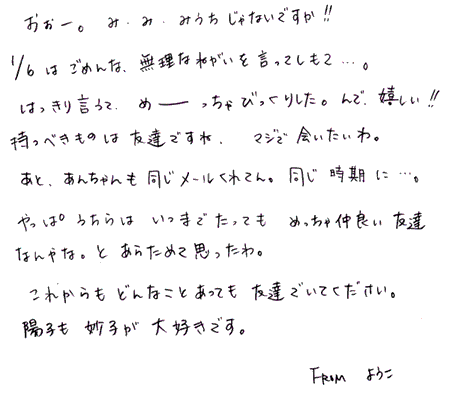 おぉー。み・み・みうちじゃないですか!!
1/6はごめんな、無理なねがいを言ってしもて…。
はっきり言うて、めーっちゃびっくりした。んで、嬉しい!!
持つべきものは友達ですね、マジで会いたいわ。
あと、あんちゃんも同じメールくれてん。同じ時期に…。
やっぱうちらはいつまでたってもめっちゃ仲良い友達
なんやな。とあらためて思ったわ。
これからもどんなことあっても友達でいてください。
陽子も妙子が大好きです。
FROM ようこ